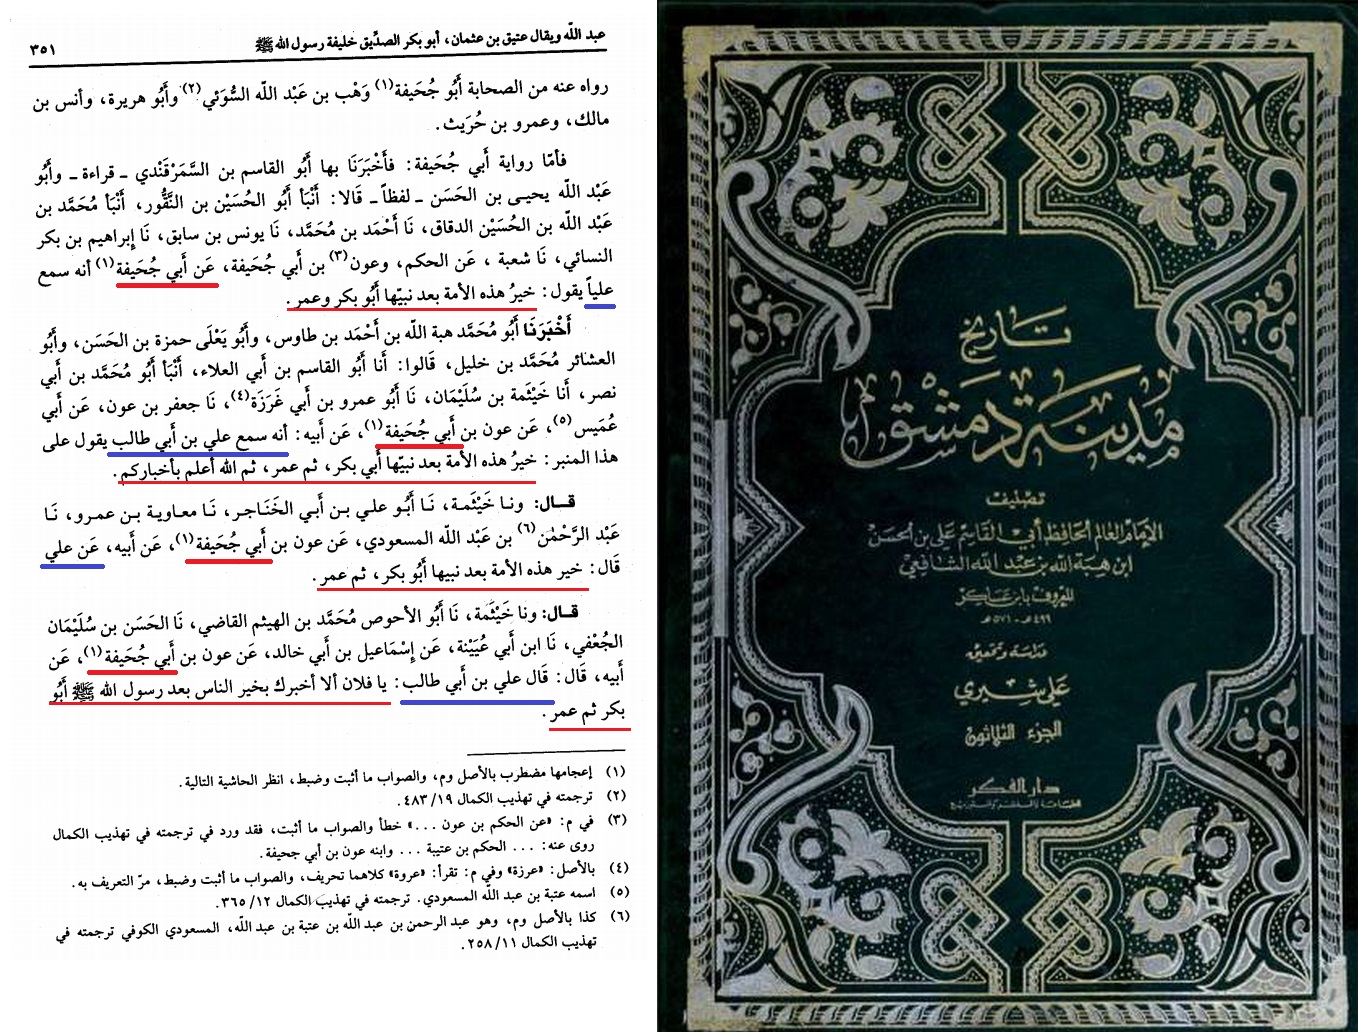 عبد اللّه ويقال عتيق بن عثمان، أبو بكر الصدّيق خليفة رسول الله ﷺ
٣٥١
رواه عنه من الصحابة أَبُو جُحَيفة(١) وَهْب بن عَبْد اللّه السُّوَئي(٢) وأَبُو هريرة، وأنس بن
مالك، وعمرو بن حُرَيث.
فأمّا رواية أَبي جُحَيفة: فأَخْبَرَنَا بها أَبُو القاسم بن السَّمَرْقَنْدي ـ قراءة ـ وأَبُو
عَبْد اللّه يحيـى بن الحَسَن ـ لفظاً ـ قَالا: أَنْبَأ أَبُو الحُسَيْن بن النَّقُّور، أَنْبَأ مُحَمَّد بن
عَبْد اللّه بن الحُسَيْن الدقاق، نَا أَحْمَد بن مُحَمَّد، نَا يونس بن سابق، نَا إبراهيم بن بكر
النسائي، نَا شعبة ، عَن الحكم، وعون(٣) بن أَبي جُحَيفة، عَن أَبي جُحَيفة(١) أنه سمع
علياً يقول: خيرُ هذه الأمة بعد نبيّها أَبُو بكر وعمر.
أَخْبَرَنَا أَبُو مُحَمَّد هبة اللّه بن أَحْمَد بن طاوس، وأَبُو يَعْلَى حمزة بن الحَسَن، وأَبُو
العشائر مُحَمَّد بن خليل، قَالوا: أَنا أَبُو القاسم بن أَبي العلاء، أَنْبَأ أَبُو مُحَمَّد بن أَبي
نصر، أَنا خَيْثَمة بن سُلَيْمَان، نَا أَبُو عمرو بن أَبي غَرَزَة(٤)، نَا جعفر بن عون، عَن أَبي
عُمَيس(٥)، عَن عون بن أَبي جُحَيفة(١)، عَن أَبيه: أنه سمع علي بن أَبي طالب يقول على
هذا المنبر: خيرُ هذه الأمة بعد نبيّها أَبي بكر، ثم عمر، ثم الله أعلم بأخباركم.
قــال: ونـا خَيْثَمـة، نَـا أَبُـو علـي بـن أَبـي الخَنَـاجـر، نَـا معـاويـة بـن عمـرو، نَـا
عَبْد الرَّحْمٰن(٦) بن عَبْد اللّه المسعودي، عَن عون بن أَبي جُحَيفة(١)، عَن أَبيه، عَن علي
قَال: خير هذه الأمة بعد نبيها أَبُو بكر، ثم عمر.
قــال: ونا خَيْثَمة، نَا أَبُو الأحوص مُحَمَّد بن الهيثم القاضي، نَا الحَسَن بن سُلَيْمَان
الجُعْفي، نَا ابن أَبي عُيَيْنة، عَن إِسْمَاعيل بن أَبي خالد، عَن عون بن أَبي جُحَيفة(١)، عَن
أَبيه، قَال: قَال علي بن أَبي طالب: يا فلان ألا أخبرك بخير الناس بعد رسول الله ﷺ أَبُو
بكر ثم عمر.
(١) إعجامها مضطرب بالأصل وم، والصواب ما أثبت وضبط، انظر الحاشية التالية.
(٢) ترجمته في تهذيب الكمال ١٩/ ٤٨٣.
(٣) في م: «عن الحكم بن عون ...» خطأ والصواب ما أثبت، فقد ورد في ترجمته في تهذيب الكمال
روى عنه: ... الحكم بن عتيبة ... وابنه عون بن أبي جحيفة.
(٤) بالأصل: «عرزة» وفي م: تقرأ: «عروة» كلاهما تحريف، والصواب ما أثبت وضبط، مرّ التعريف به.
(٥) اسمه عتبة بن عبد اللّه المسعودي. ترجمته في تهذيب الكمال ١٢/ ٣٦٥.
(٦) كذا بالأصل وم، وهو عبد الرحمن بن عبد اللّه بن عتبة بن عبد اللّه، المسعودي الكوفي ترجمته في
تهذيب الكمال ١١/ ٢٥٨.
تاريخ
مدينة دمشق
تصنيف
الإمام العالم الحافظ أبي القاسم علي بن الحسن
ابن هبة الله بن عبد الله الشافعي
المعروف بابن عساكر
٤٩٩ هـ - ٥٧١ هـ
دراسة وتحقيق
علي شيري
الجزء الثلاثون
دار الفكر
للطباعة والنشر والتوزيع